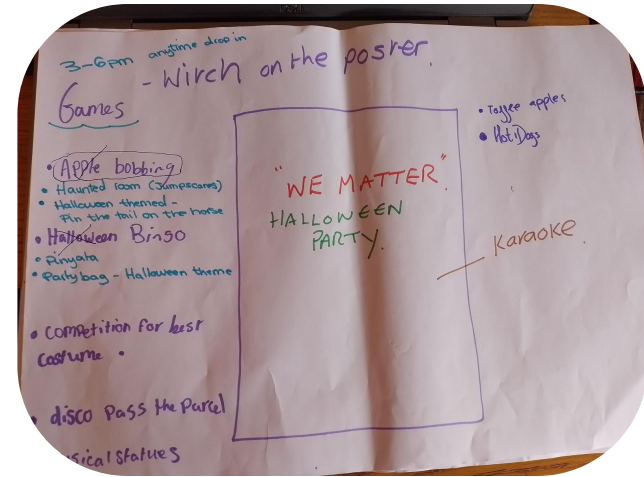 3-6pm anytime drop in
- Wirch on the poster.
Games
• Apple bobbing
• Haunted room (Jumpscares)
• Halloween themed -
Pin the tail on the horse
• Halloween Bingo
• Pinyata
• Partybag - Halloween theme
• competition for best
costume •
• disco Pass the Parcel
sical statues
"WE MATTER".
HALLOWEEN
PARTY.
• Toffee apples
• Hot Dogs
Karaoke.